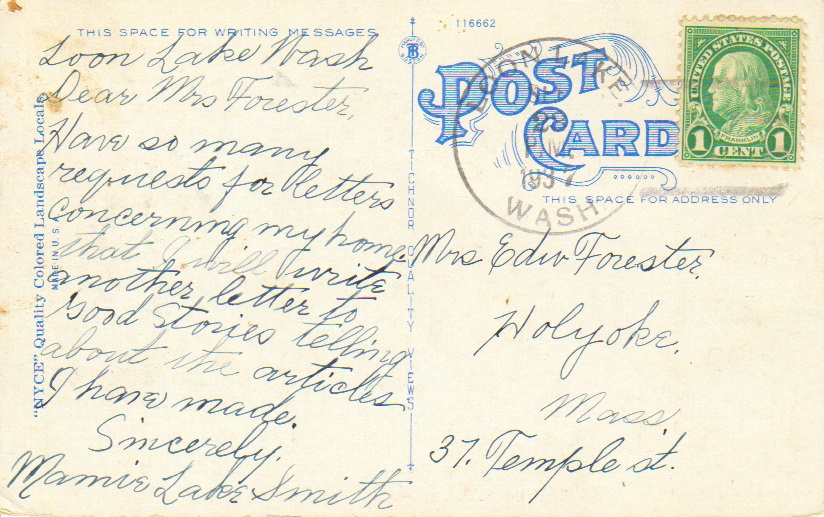 THIS SPACE FOR WRITING MESSAGES
Loon Lake Wash
Dear Mrs Forester,
Have so many
requests for letters
concerning my home
that I will write
another letter to
Good Stories telling
about the articles
I have made.
Sincerely,
Mamie Lake Smith
"NYCE" Quality Colored Landscape Locals
MADE IN U.S.A.
116662
POST
CARD
TICHNOR QUALITY VIEWS
LOON LAKE.
PM
1937
WASH
UNITED STATES POSTAGE
FRANKLIN
1 CENT 1
THIS SPACE FOR ADDRESS ONLY
Mrs Edw Forester,
Holyoke,
Mass
37. Temple st.